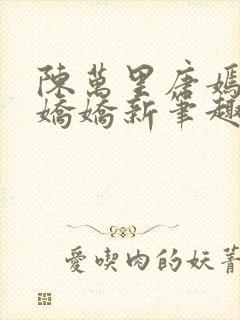 陳萬里唐嫣
嬌嬌新筆趣
愛喫肉的妖菁